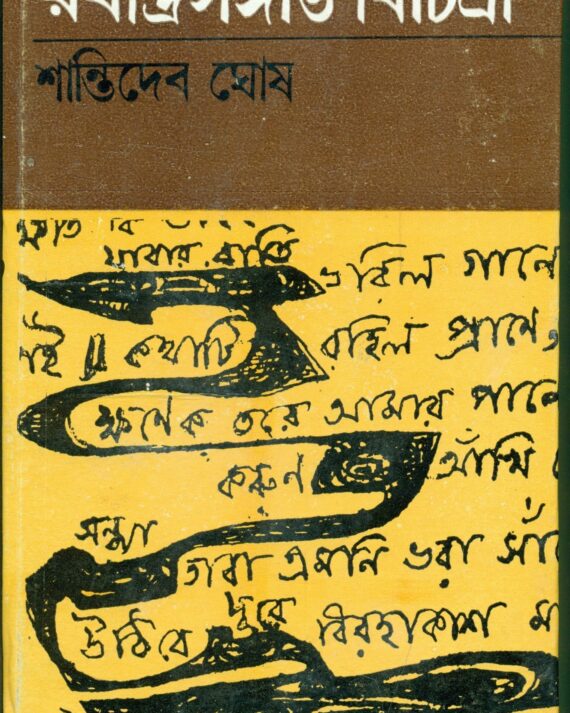 রবীন্দ্রসঙ্গীত বিচিত্রা
শান্তিদেব ঘোষ
ক্ষতি কি
যাবার রাতি
ভরিল গানে
সেই কথাটি রহিল প্রাণে
ক্ষণেক তরে আমার পানে
করুণ আঁখি
সন্ধ্যা
তারা এমনি ভরা সাঁ
দূরে
উঠিবে বিরহাকাশ মা